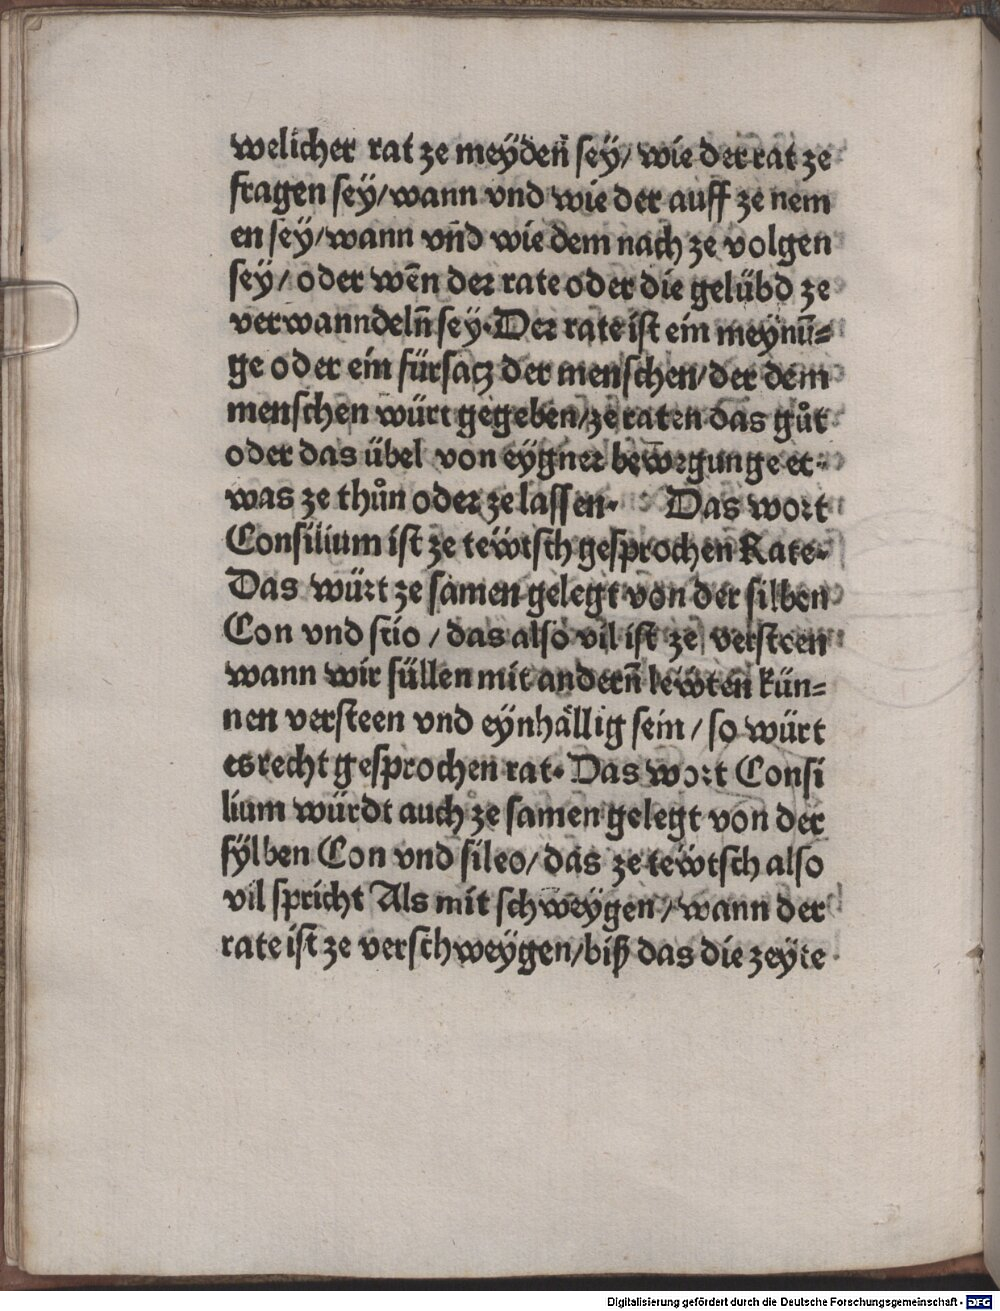 welicher rat ze meÿdeñ seÿ/ wie der rat ze
fragen seÿ/wann vnd wie der auff ze nem
en seÿ/wann vñd wie dem nach ze volgen
seÿ/ oder wēn der rate oder die gelübd ze
verwanndelñ seÿ·Der rate ist ein meÿnū⸗
ge oder ein fürsacz der menschen/der dem
menschen würt gegeben/ze raten das gůt
oder das übel von eÿgner bewegunge et⸗
was ze thůn oder ze lassen· Das wort
Consilium ist ze teẅtsch gesprochen Rate·
Das würt ze samen gelegt von der silben
Con vnd scio / das also vil ist ze versteen
wann wir süllen mit anderñ leẅten kün⸗
nen versteen vnd eÿnhällig sein / so würt
es recht gesprochen rat· Das wort Consi
lium würdt auch ze samen gelegt von der
sÿlben Con vnd sileo/ das ze teẅtsch also
vil spricht Als mit schweÿgen / wann der
rate ist ze verschweÿgen/biß das die zeÿte
Digitalisierung gefördert durch die Deutsche Forschungsgemeinschaft - DFG